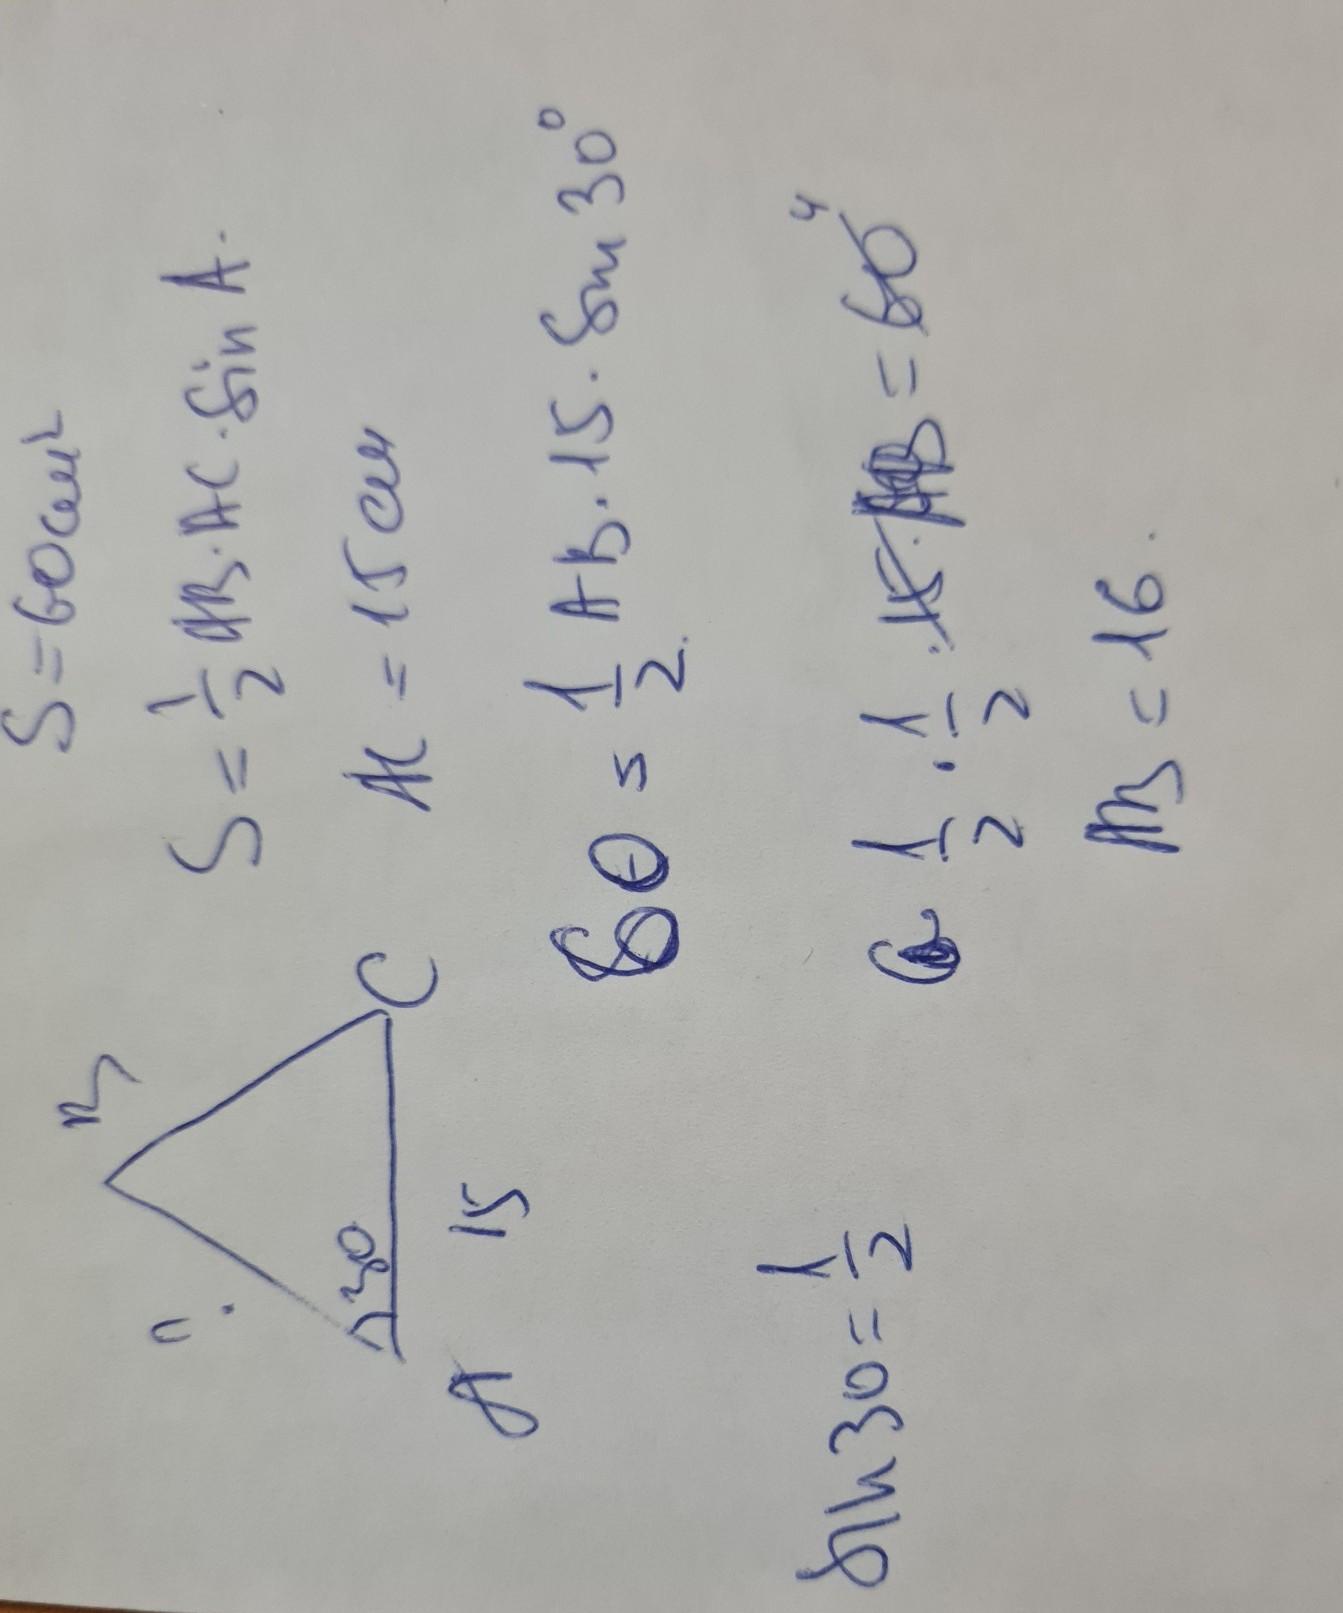 S = 60 см²
S = 1/2 AB · AC · Sin A.
AC = 15 см
B
C
30
A
15
60 = 1/2 · AB · 15 · Sin 30°
Sin 30 = 1/2
1/2 · 1/2 · 15 · AB = 60 4
AB = 16.